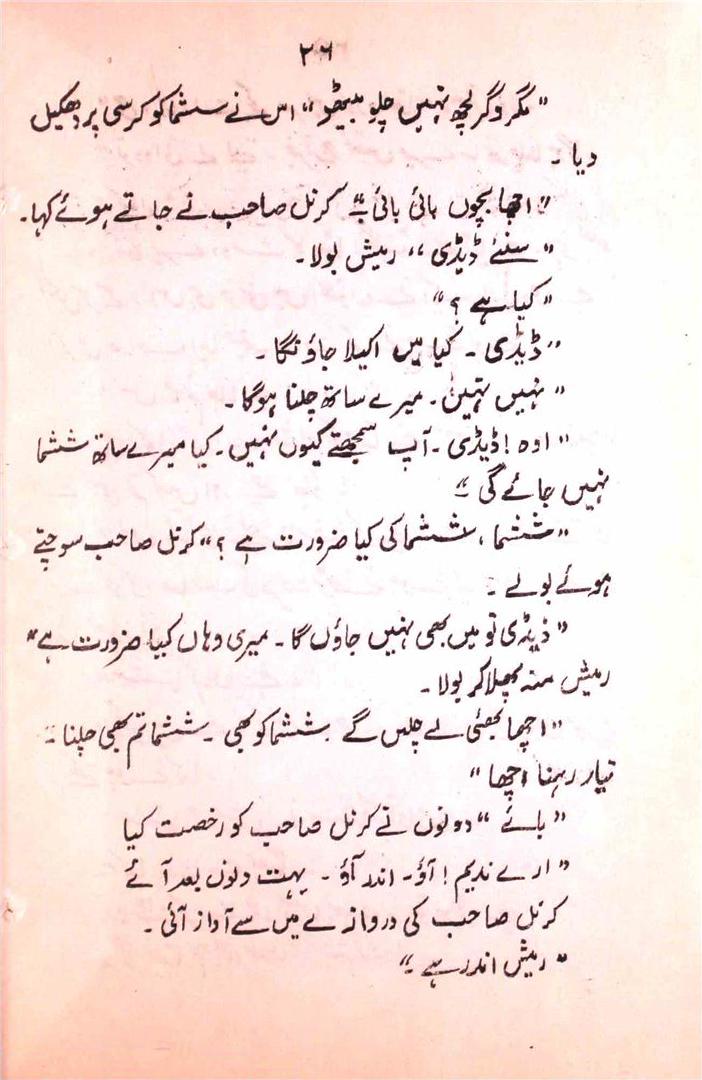 ۲۶
"مگر وگر کچھ نہیں چلو بیٹھو" اس نے سشما کو کرسی پر دھکیل
دیا۔
"اچھا بچوں بائی بائی۔" کرنل صاحب نے جاتے ہوئے کہا۔
"سنئے ڈیڈی" رمیش بولا۔
"کیا ہے؟"
"ڈیڈی۔ کیا میں اکیلا جاؤنگا۔
"نہیں نہیں۔ میرے ساتھ چلنا ہوگا۔
"اوہ! ڈیڈی۔ آپ سمجھتے کیوں نہیں۔ کیا میرے ساتھ ششما
نہیں جائے گی۔"
"ششما، ششما کی کیا ضرورت ہے؟" کرنل صاحب سوچتے
ہوئے بولے۔
"ڈیڈی تو میں بھی نہیں جاؤں گا۔ میری وہاں کیا ضرورت ہے"
رمیش منہ پھلا کر بولا۔
"اچھا بھئی لے چلیں گے ششما کو بھی۔ ششما تم بھی چلنا۔
تیار رہنا اچھا"
"بائے" دونوں نے کرنل صاحب کو رخصت کیا
"ارے ندیم! آؤ۔ اندر آؤ۔ بہت دنوں بعد آئے
کرنل صاحب کی دروازے میں سے آواز آئی۔
"رمیش اندر ہے۔"